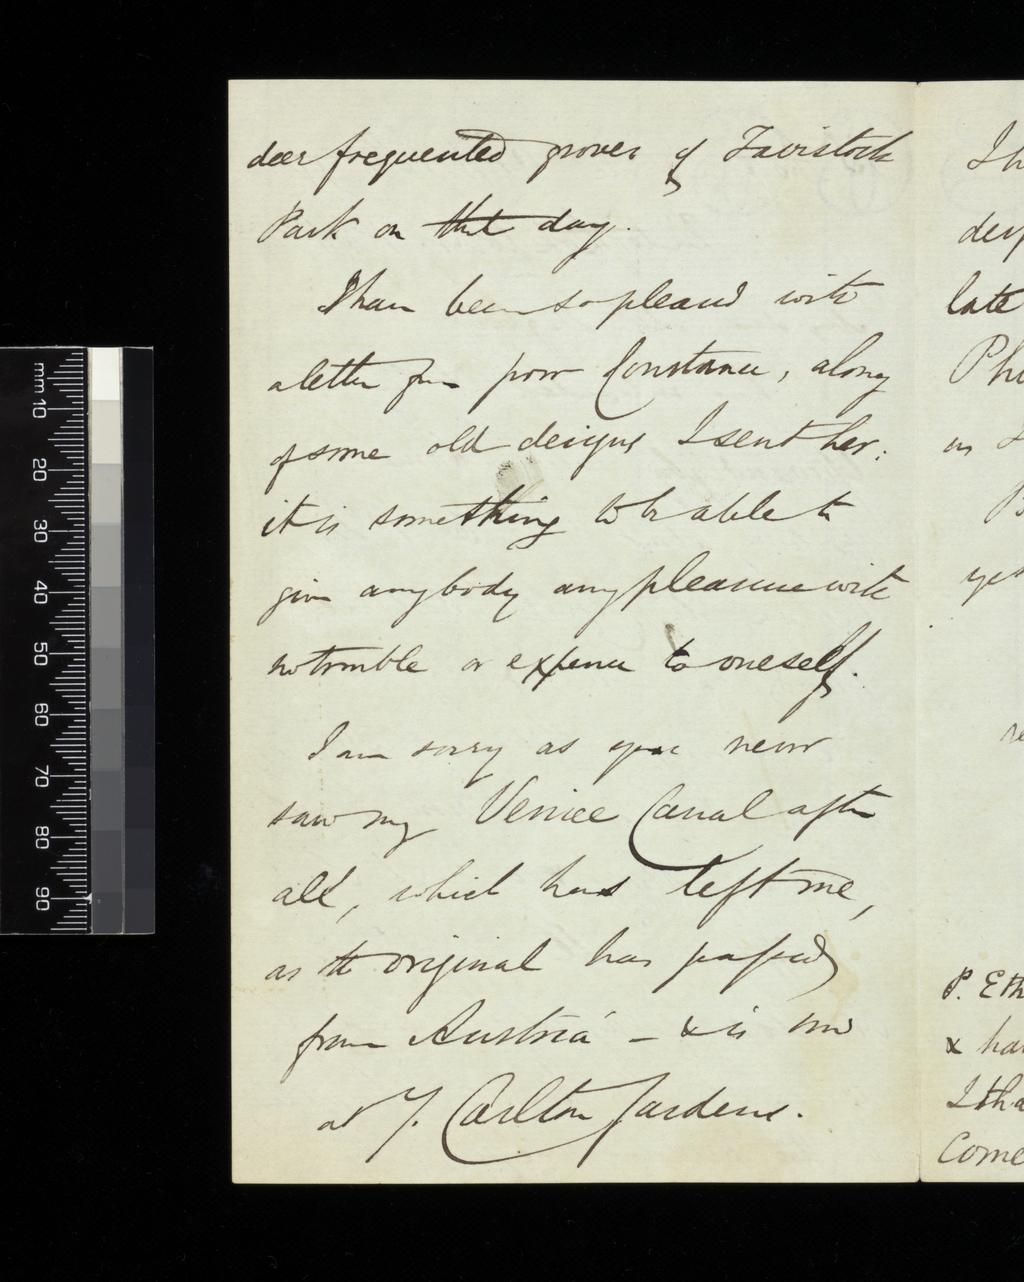 deer frequented groves of Tavistock
Park on that day.
I have been so pleased with
a letter from poor Constance, along
of some old designs I sent her:
it is something to be able to
give anybody any pleasure with
no trouble or expence to oneself.
I am sorry as you never
saw my Venice Canal after
all, which has left me,
as the original has passed
from Austria - & is now
at 7. Carlton Gardens.
I h
des
late
Ph
as
B
yes
P. Eth
& ha
I tha
Come
mm
10
20
30
40
50
60
70
80
90